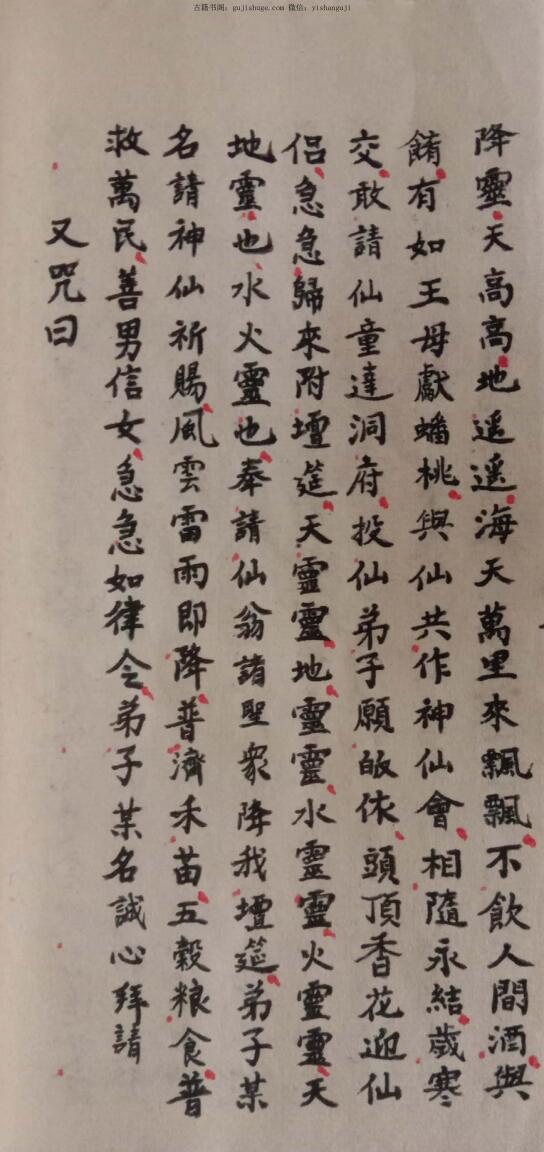 古籍书阁：gujishuge.com 微信：yishanguji
降靈天高高地遥遥海天萬里來飄飄不飲人間酒與
餚有如王母獻蟠桃與仙共作神仙會相隨永結歲寒
交敢請仙童達洞府投仙弟子願皈依頭頂香花迎仙
侣急急歸來附壇筵天靈靈地靈靈水靈靈火靈靈天
地靈也水火靈也奉請仙翁諸聖衆降我壇筵弟子某
名請神仙祈賜風雲雷雨即降普濟禾苗五穀粮食普
救萬民善男信女急急如律令弟子某名誠心拜請
又咒曰